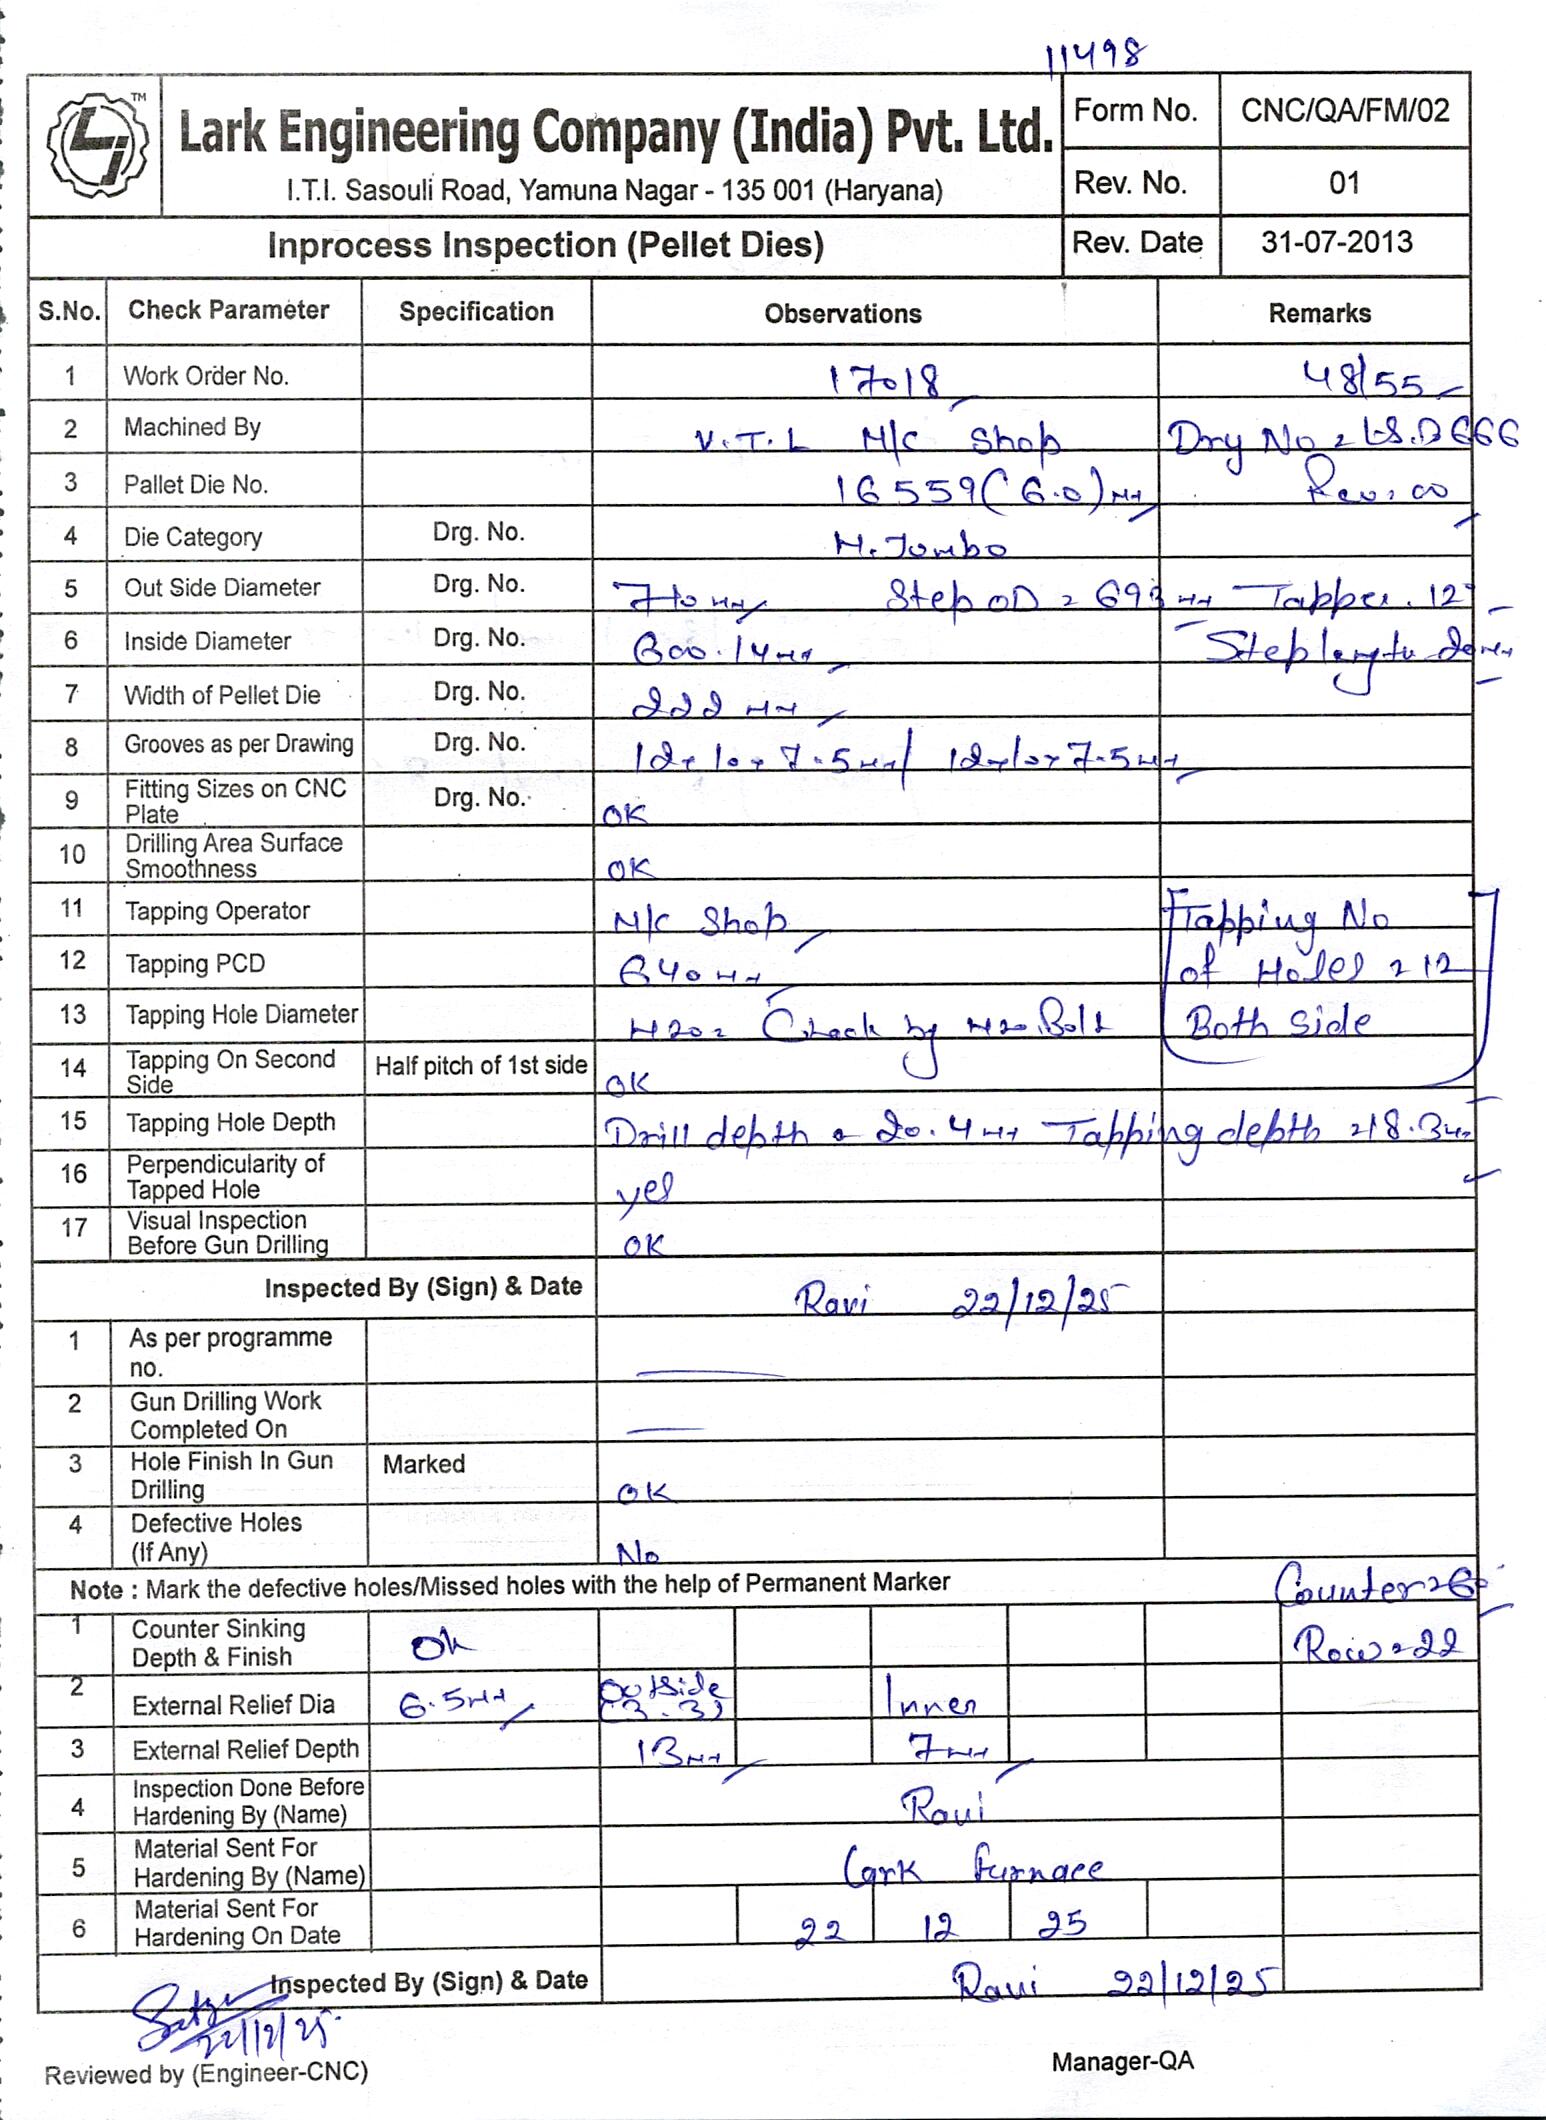 11498
TM
Lark Engineering Company (India) Pvt. Ltd.
I.T.I. Sasouli Road, Yamuna Nagar - 135 001 (Haryana)
Form No. CNC/QA/FM/02
Rev. No. 01
Inprocess Inspection (Pellet Dies) Rev. Date 31-07-2013
S.No. Check Parameter Specification Observations Remarks
1 Work Order No. 17018 48/55
2 Machined By V.T.L M/C Shop Drg No = 666
3 Pallet Die No. 16559 (6.0) MM Rev: 00
4 Die Category Drg. No. M. Jumbo
5 Out Side Diameter Drg. No. 710 MM Step OD = MM Tapper. 12°
6 Inside Diameter Drg. No. 600.14 MM Step length 20 MM
7 Width of Pellet Die Drg. No. 222 MM
8 Grooves as per Drawing Drg. No. 12x10x7.5 MM / 12x10x7.5 MM
9 Fitting Sizes on CNC Plate Drg. No. OK
10 Drilling Area Surface Smoothness OK
11 Tapping Operator M/C Shop Tapping No
12 Tapping PCD 640 MM of Holes = 12
13 Tapping Hole Diameter M20 = Check by M20 Bolt Both Side
14 Tapping On Second Side Half pitch of 1st side OK
15 Tapping Hole Depth Drill depth = 20.4 MM Tapping depth = 18.3 MM
16 Perpendicularity of Tapped Hole yes
17 Visual Inspection Before Gun Drilling OK
Inspected By (Sign) & Date Ravi 22/12/25
1 As per programme no.
2 Gun Drilling Work Completed On
3 Hole Finish In Gun Drilling Marked OK
4 Defective Holes (If Any) No
Note : Mark the defective holes/Missed holes with the help of Permanent Marker Counter = 60°
1 Counter Sinking Depth & Finish Ok Row = 22
2 External Relief Dia 6.5 MM Outside (3.3) Inner
3 External Relief Depth 13 MM 7 MM
4 Inspection Done Before Hardening By (Name) Ravi
5 Material Sent For Hardening By (Name) Lark Furnace
6 Material Sent For Hardening On Date 22 12 25
Inspected By (Sign) & Date Ravi 22/12/25
22/12/25
Reviewed by (Engineer-CNC) Manager-QA